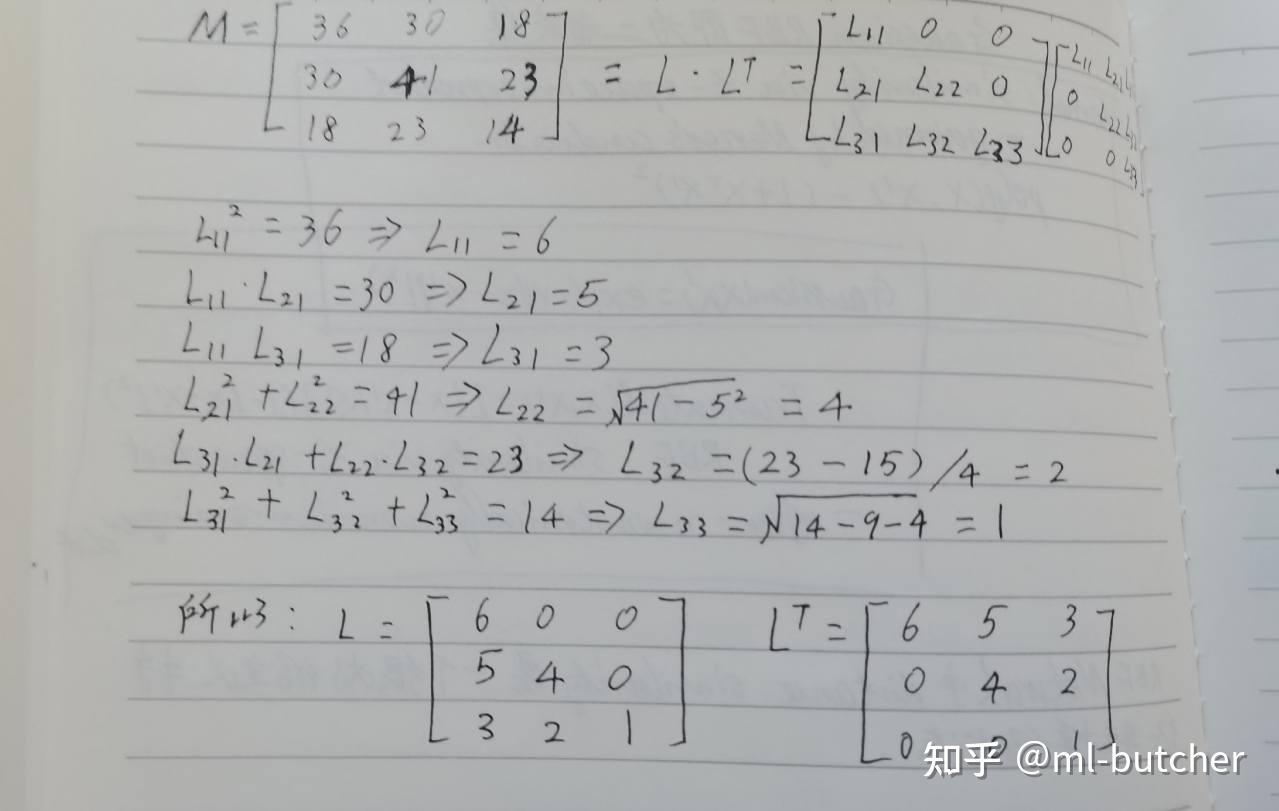 M = [ 36 30 18 ; 30 41 23 ; 18 23 14 ] = L · Lᵀ = [ L₁₁ 0 0 ; L₂₁ L₂₂ 0 ; L₃₁ L₃₂ L₃₃ ] [ L₁₁ L₂₁ ; 0 L₂₂ ; 0 0 L₃₃ ]
L₁₁² = 36 ⇒ L₁₁ = 6
L₁₁ · L₂₁ = 30 ⇒ L₂₁ = 5
L₁₁ L₃₁ = 18 ⇒ L₃₁ = 3
L₂₁² + L₂₂² = 41 ⇒ L₂₂ = √(41 - 5²) = 4
L₃₁ · L₂₁ + L₂₂ · L₃₂ = 23 ⇒ L₃₂ = (23 - 15) / 4 = 2
L₃₁² + L₃₂² + L₃₃² = 14 ⇒ L₃₃ = √(14 - 9 - 4) = 1
所以: L = [ 6 0 0 ; 5 4 0 ; 3 2 1 ] Lᵀ = [ 6 5 3 ; 0 4 2 ; 0 0 1 ]
知乎 @ml-butcher